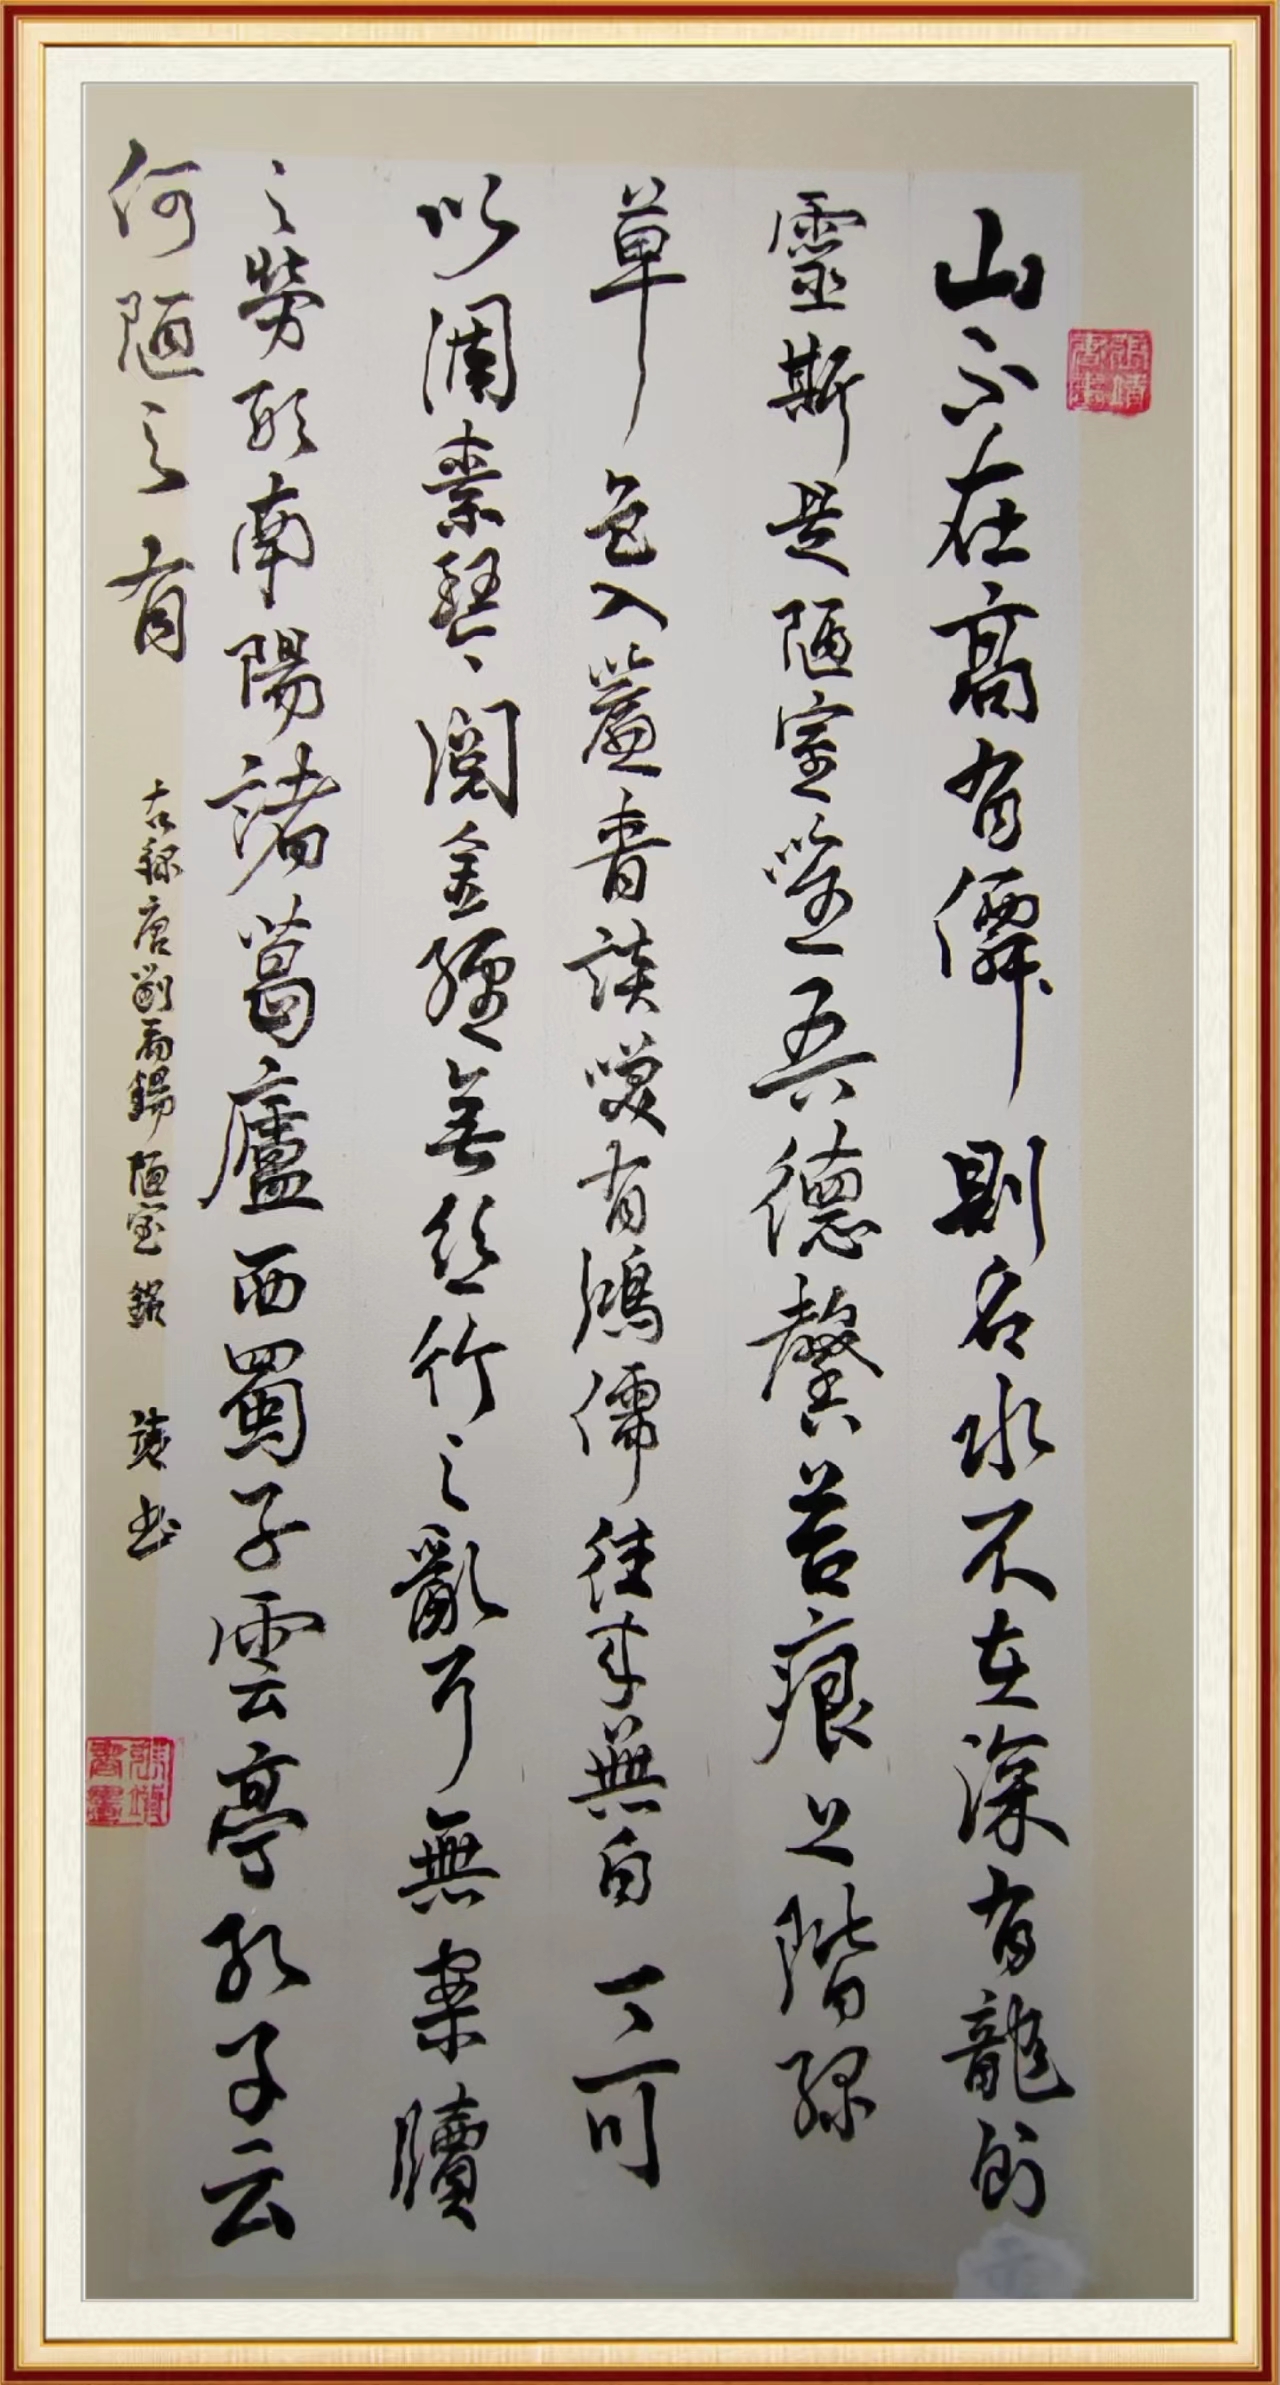 山不在高有僊則名水不在深有龍則
靈斯是陋室惟吾德馨苔痕上階緑
草色入簾青談笑有鴻儒往来無白丁可
以調素琴閲金經無絲竹之亂耳無案牘
之勞形南陽諸葛廬西蜀子雲亭孔子云
何陋之有
古録唐劉禹錫陋室銘 靖書